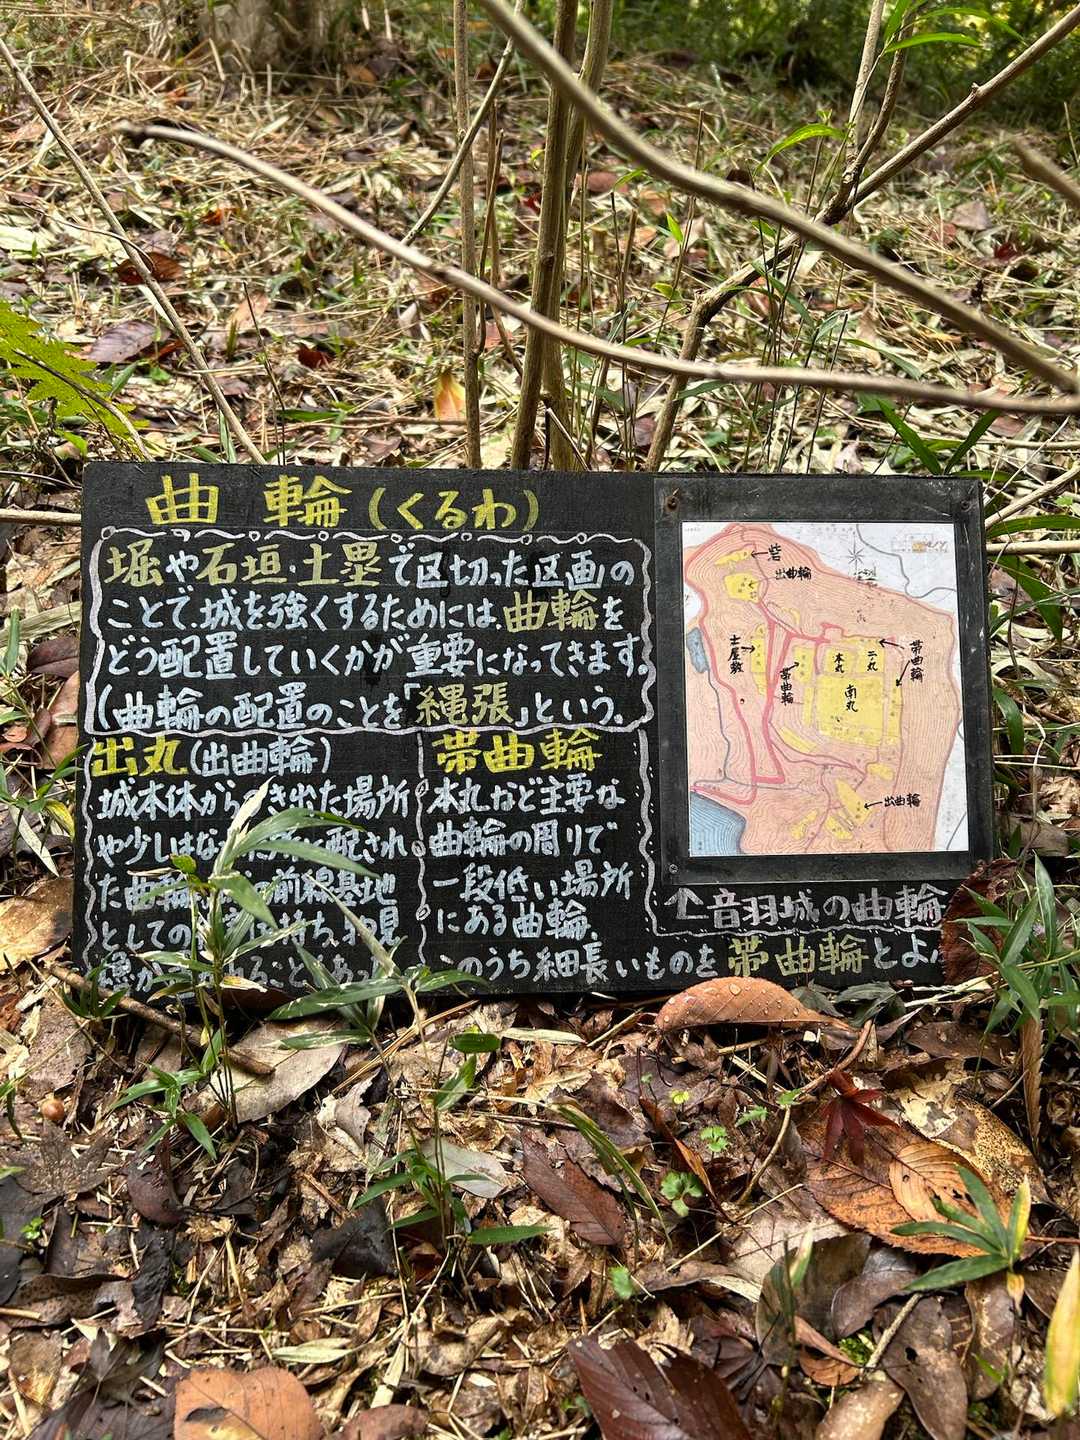 曲輪(くるわ)
堀や石垣・土塁で区切った区画の
ことで、城を強くするためには、曲輪を
どう配置していくかが重要になってきます。
(曲輪の配置のことを「縄張」という。
出丸(出曲輪)
城本体から き出た場所
や少しはな 配され
た曲輪 の前線基地
としての を持ち、物見
こと あっ
帯曲輪
本丸など主要な
曲輪の周りで
一段低い場所
にある曲輪。
このうち細長いものを帯曲輪とよ
砦
出曲輪
土屋敷
帯曲輪
本丸
二ノ丸
南丸
帯曲輪
出曲輪
↑音羽城の曲輪